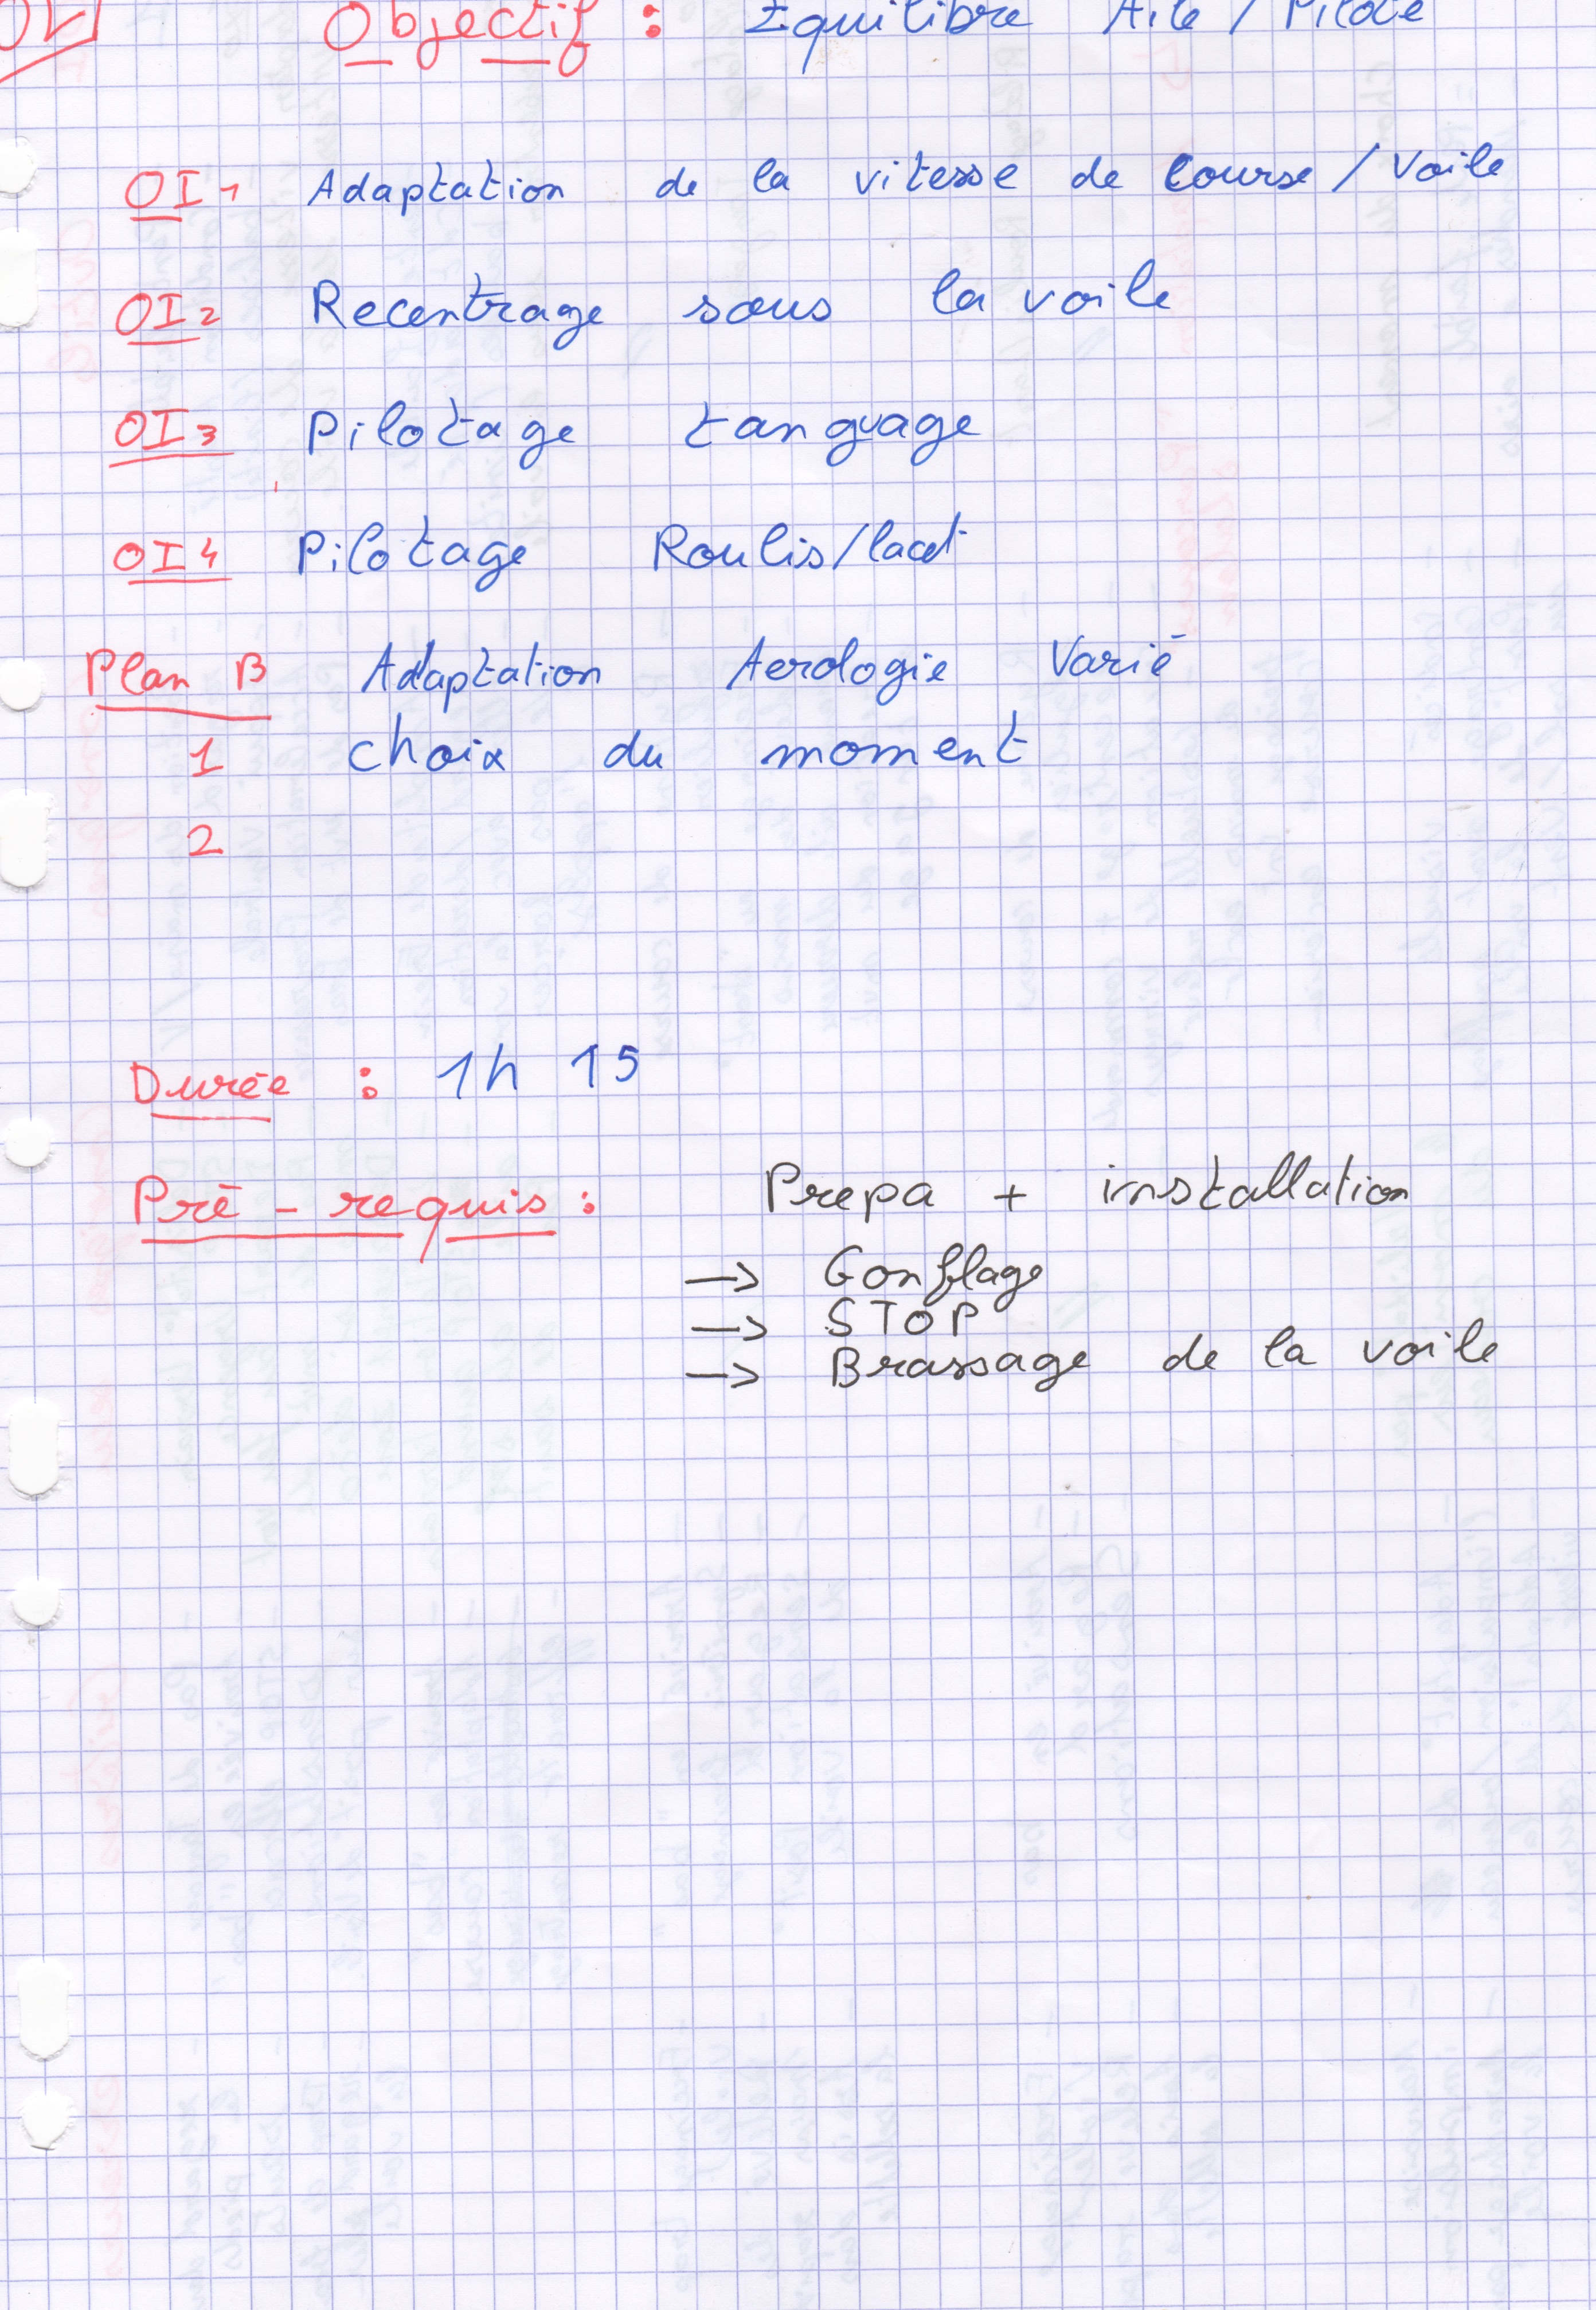 Objectif : Equilibre Aile / Pilote
OI1 Adaptation de la vitesse de course / Voile
OI2 Recentrage sous la voile
OI3 Pilotage tanguage
OI4 Pilotage Roulis/lacet
Plan B Adaptation Aerologie Varié
1 choix du moment
2
Durée : 1h 15
Pré-requis : Prepa + installation
→ Gonflage
→ STOP
→ Brassage de la voile